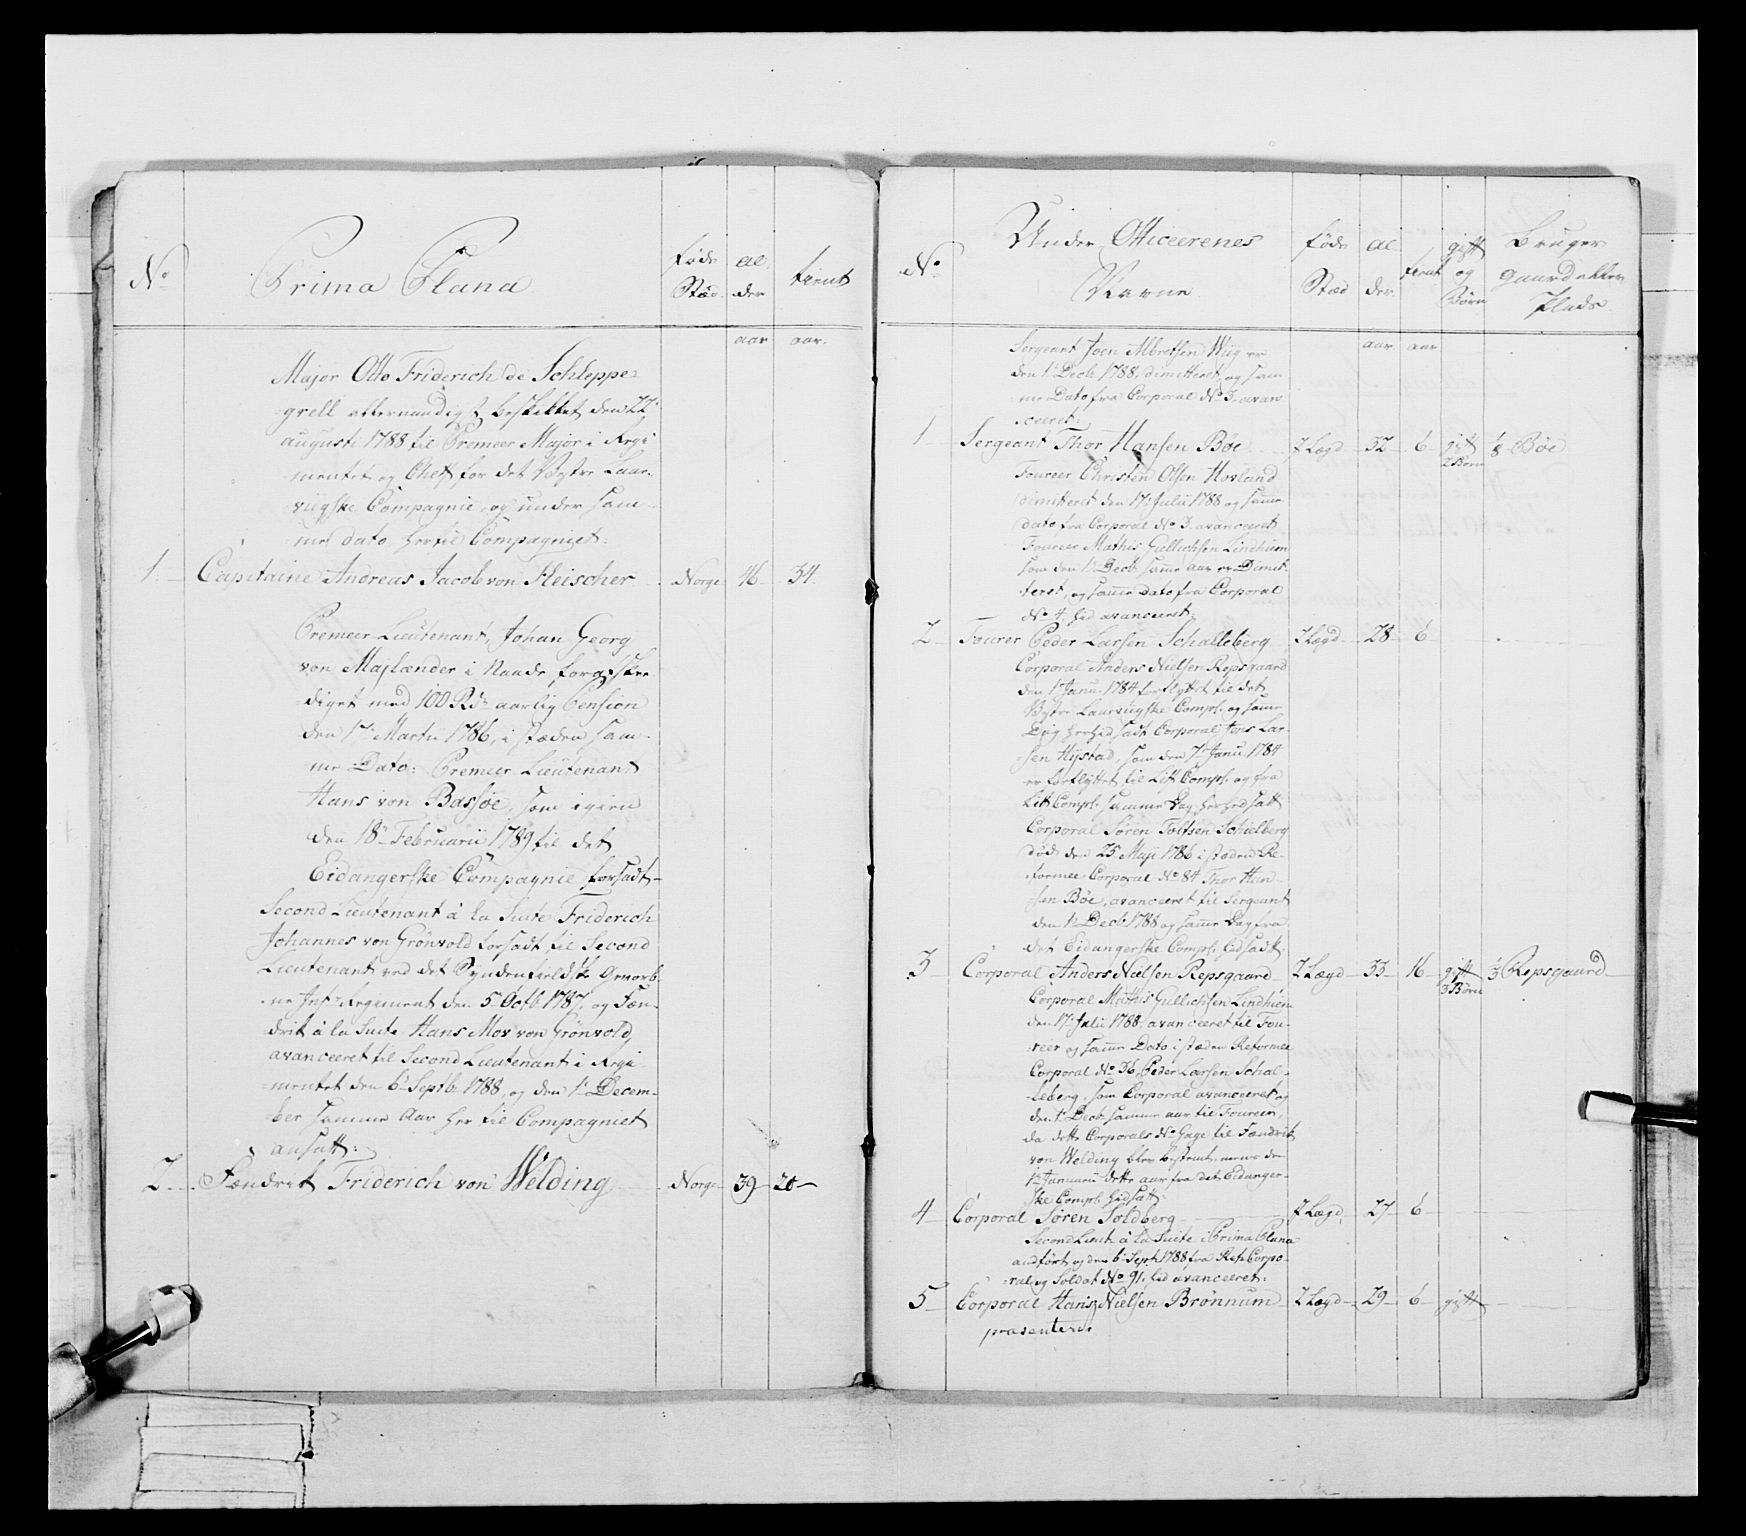 No
Prima Plana
føde
Stæd
al
der
tient
aar
aar.
Major Otto Friderich de Schleppe-
grell allernaadigst beskikket den 22
augusti 1788 til Premeer Major i Regi
mentet og Chef for det Westre Laur-
viigske Compagnie, og under sam-
me dato hertil Compagniet:
1. Capitaine Andreas Jacob von Fleischer Norge 46 34.
Premeer Lieutenant, Johan Georg
von Majlænder i Naade forafske-
diget med 100 Rdr aarlig Pension
den 17 Martii 1786, i stæden sam-
me Dato: Premeer Lieutenant
Hans von Bassøe, som igien
den 18de Februarii 1789 til det
Eidangerske Compagnie forsadt
Second Lieutenant à la Suite Friderich
Johannes von Grönvold forsadt til Second
Lieutenant ved det Syndenfieldske Gevorb-
ne Inf: Regiment den 5 Octb 1787, og Fæn-
drik à la Suite Hans Mov von Grönvold,
avanceeret til Second Lieutenant i Regi
mentet den 6 Septb: 1788, og den 1 Decem-
ber samme Aar her til Compagniet
ansatt:
2. Fændrik Friderich von Welding Norge 39 20
No
Under Officeerenes
Navne
føde
Stæd
al
der
tient
gift
og
Børn
Bruger
gaard eller
Plads
aar aar
Sergeant Joen Albretsen Wiig er
den 1 Decb 1788, dimitteret, og sam-
me Dato fra Corporal No 3, avan
ceeret:
1 Sergeant Thor Hansen Bøe 7 Lægd 32 6 gift 2 Børn 1/8 Bøe
Foureer Christen Olsen Hovland
dimitteret den 17 Julii 1788 og samme
dato fra Corporal No 3, avanceeret
Foureer Mathis Gullichsen Lindhiem
som den 1 Decb samme aar er Dimit-
teret, og samme dato fra Corporal
No 4 hid avanceeret:
2 Fourer Peder Larsen Schalleberg 7 Lægd 28 6
Corporal Anders Nielsen Repsgaard
den 1 Janu: 1784 forflyttet til det
Westre Laurviigske Comp: og samme
Dag herhid sadt Corporal Jens Lar-
sen Hystad, som den 7 Janu: 1784
er forflyttet til Litt Comp: og fra
Litt Comp: samme Dag herhed satt
Corporal Søren Tolfsen Schielberg
død den 25 Maji 1786 i stæden Re-
formee Corporal No 84 Thor Han-
sen Bøe, avanceeret til Sergeant
den 1 Decb 1788 og samme Dag fra
det Eidangerske Comp: hid satt:
3 Corporal Anders Nielsen Repsgaard 7 Lægd 33 16 gift 3 Børn 1/3 Repsgaard
Corporal Mathis Gullichsen Lindhiem
den 17 Julii 1788, avanceeret til Fou-
reer og samme Dato i stæden Reformee
Corporal No 36, Peder Larsen Schal-
leberg, som Corporal avanceeret og
den 1 Decb samme aar til Foureer,
da dette Corporals No Gage til Fændrik
von Welding blev bestemt, mens den
1 Januarii dette aar fra det Eidanger-
ske Comp: hid satt:
4 Corporal Søren Soldberg 7 Lægd 27 6
Second Lieut: à la Suite i Prima Plana
andført, og den 6 Sept: 1788 fra Ref: Corpo-
ral og Soldat No 91, hid avanceeret:
5 Corporal Hans Nielsen Brönnum 7 Lægd 29 6 gift
præsenteres